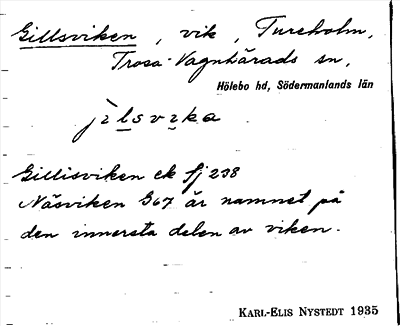 Gillsviken, vik, Tureholm,
Trosa-Vagnhärads sn,
Hölebo hd, Södermanlands län
jìlsvika
Gillisviken ek fj 238
Näsviken G67 är namnet på
den innersta delen av viken.
KARL-ELIS NYSTEDT 1935